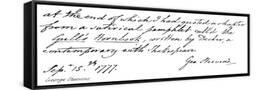 at the end of which I had quoted a chapter
from a satirical pamphlet called the
Gull's Hornbook, written by Decker, a
contemporary with Shakespeare.
Geo. Steevens
Sep.r 15.th 1777.
George Steevens